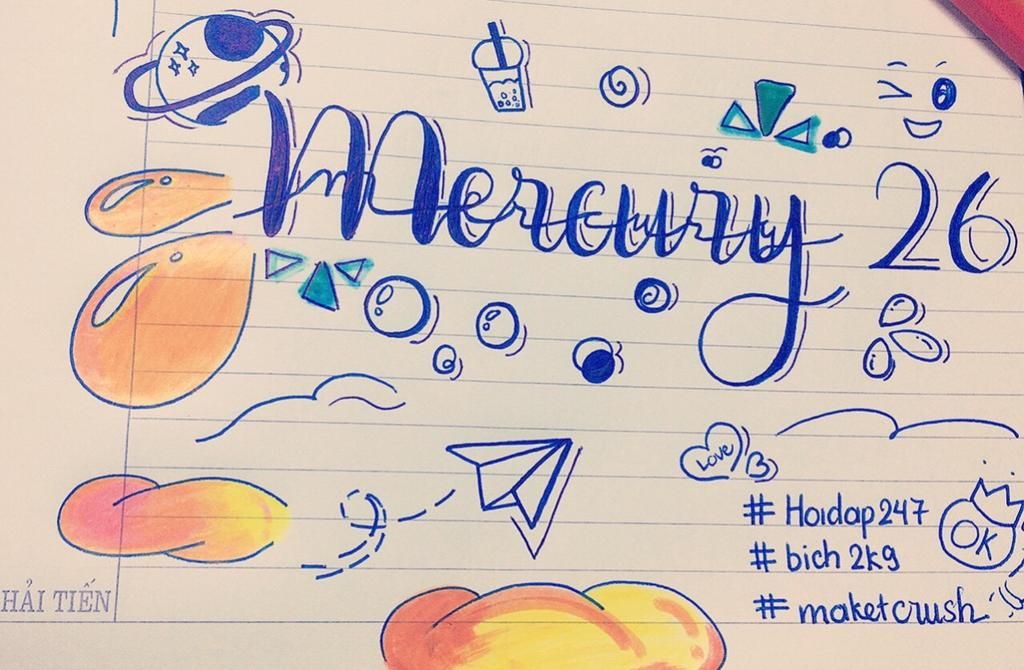 Mercury 26
Love
# Hoidap247
OK
# bich 2k9
# maketcrush
HẢI TIẾN